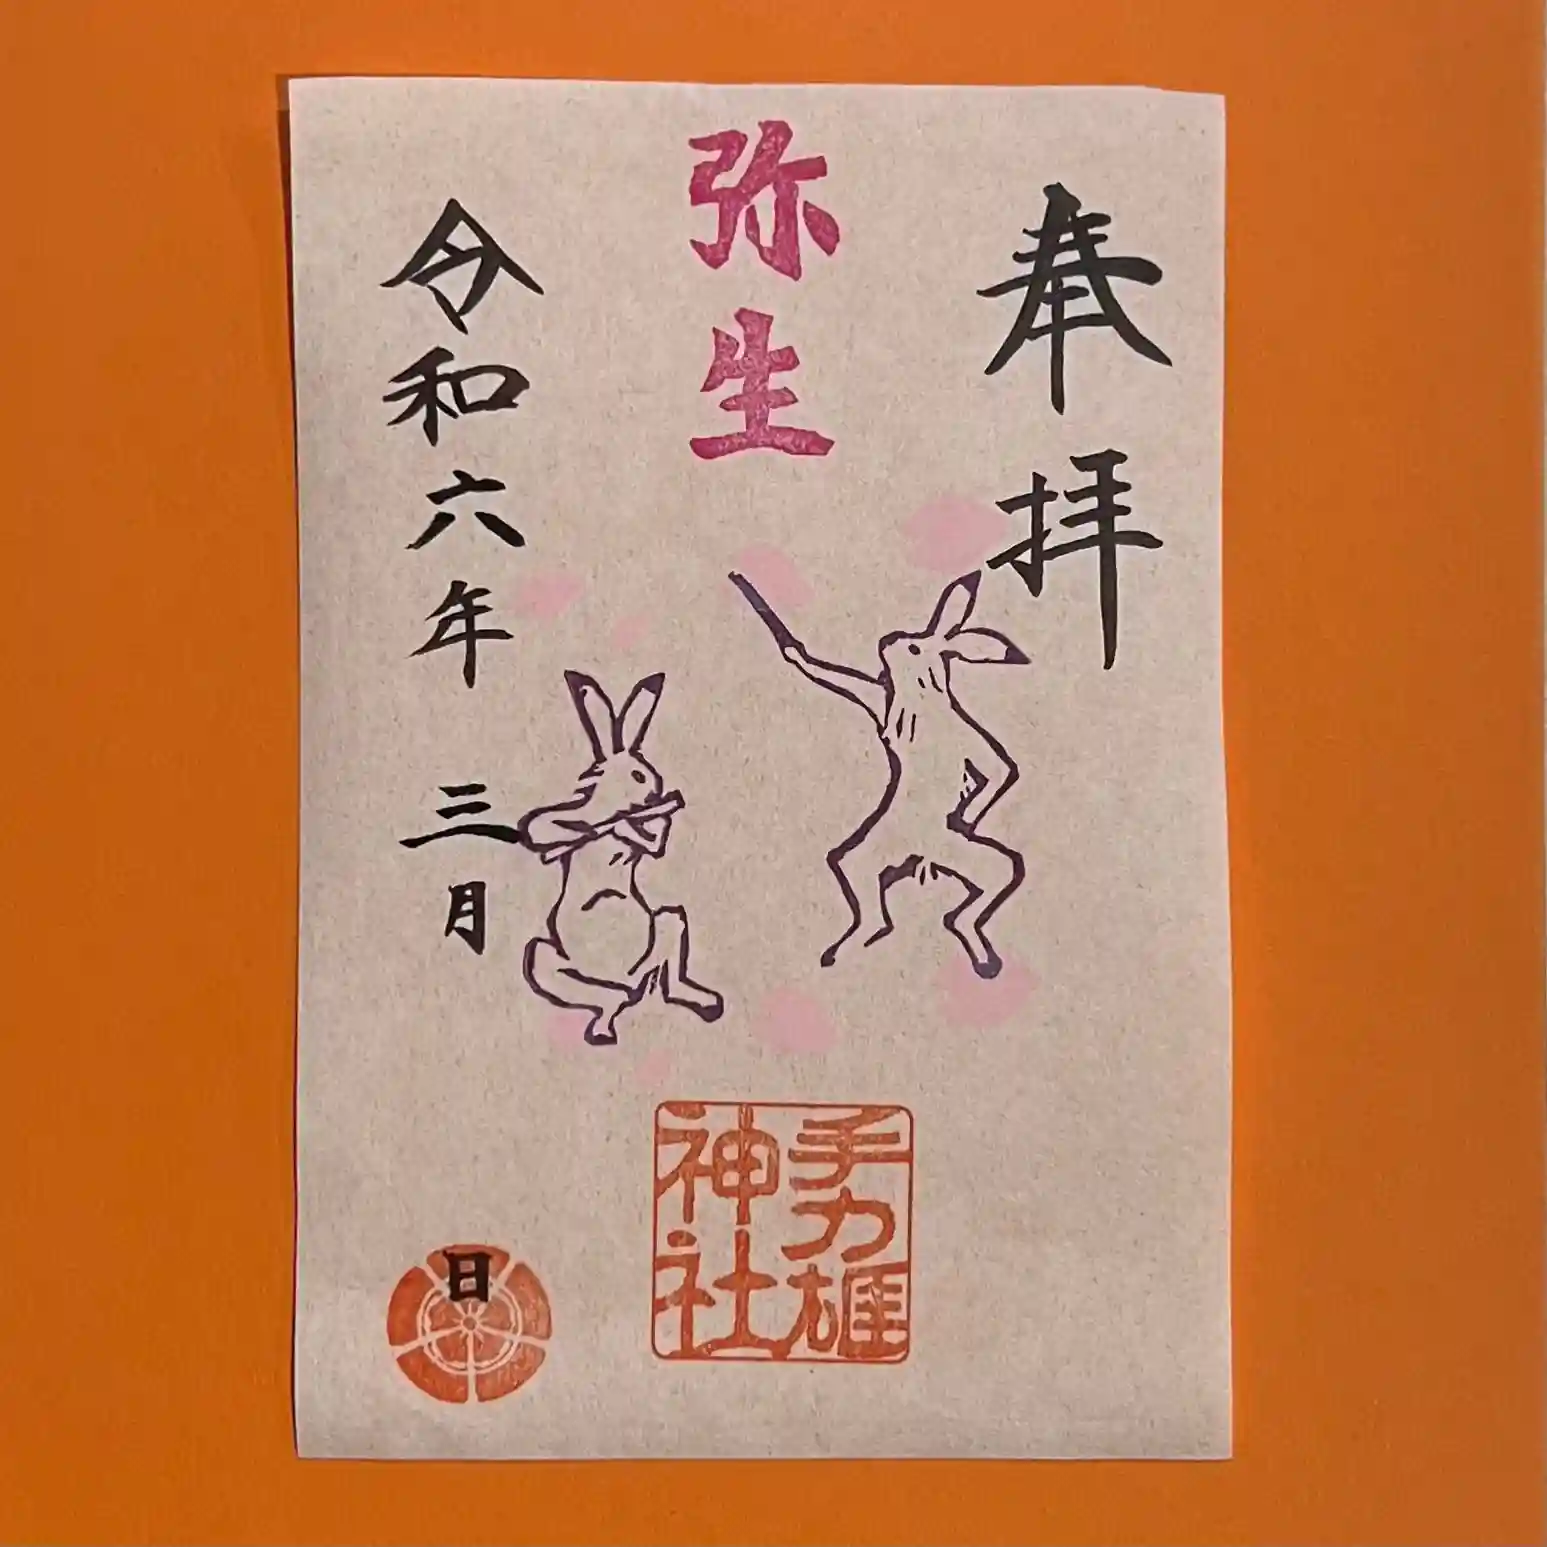 奉拝
弥生
令和六年 三月 日
手力雄
神社